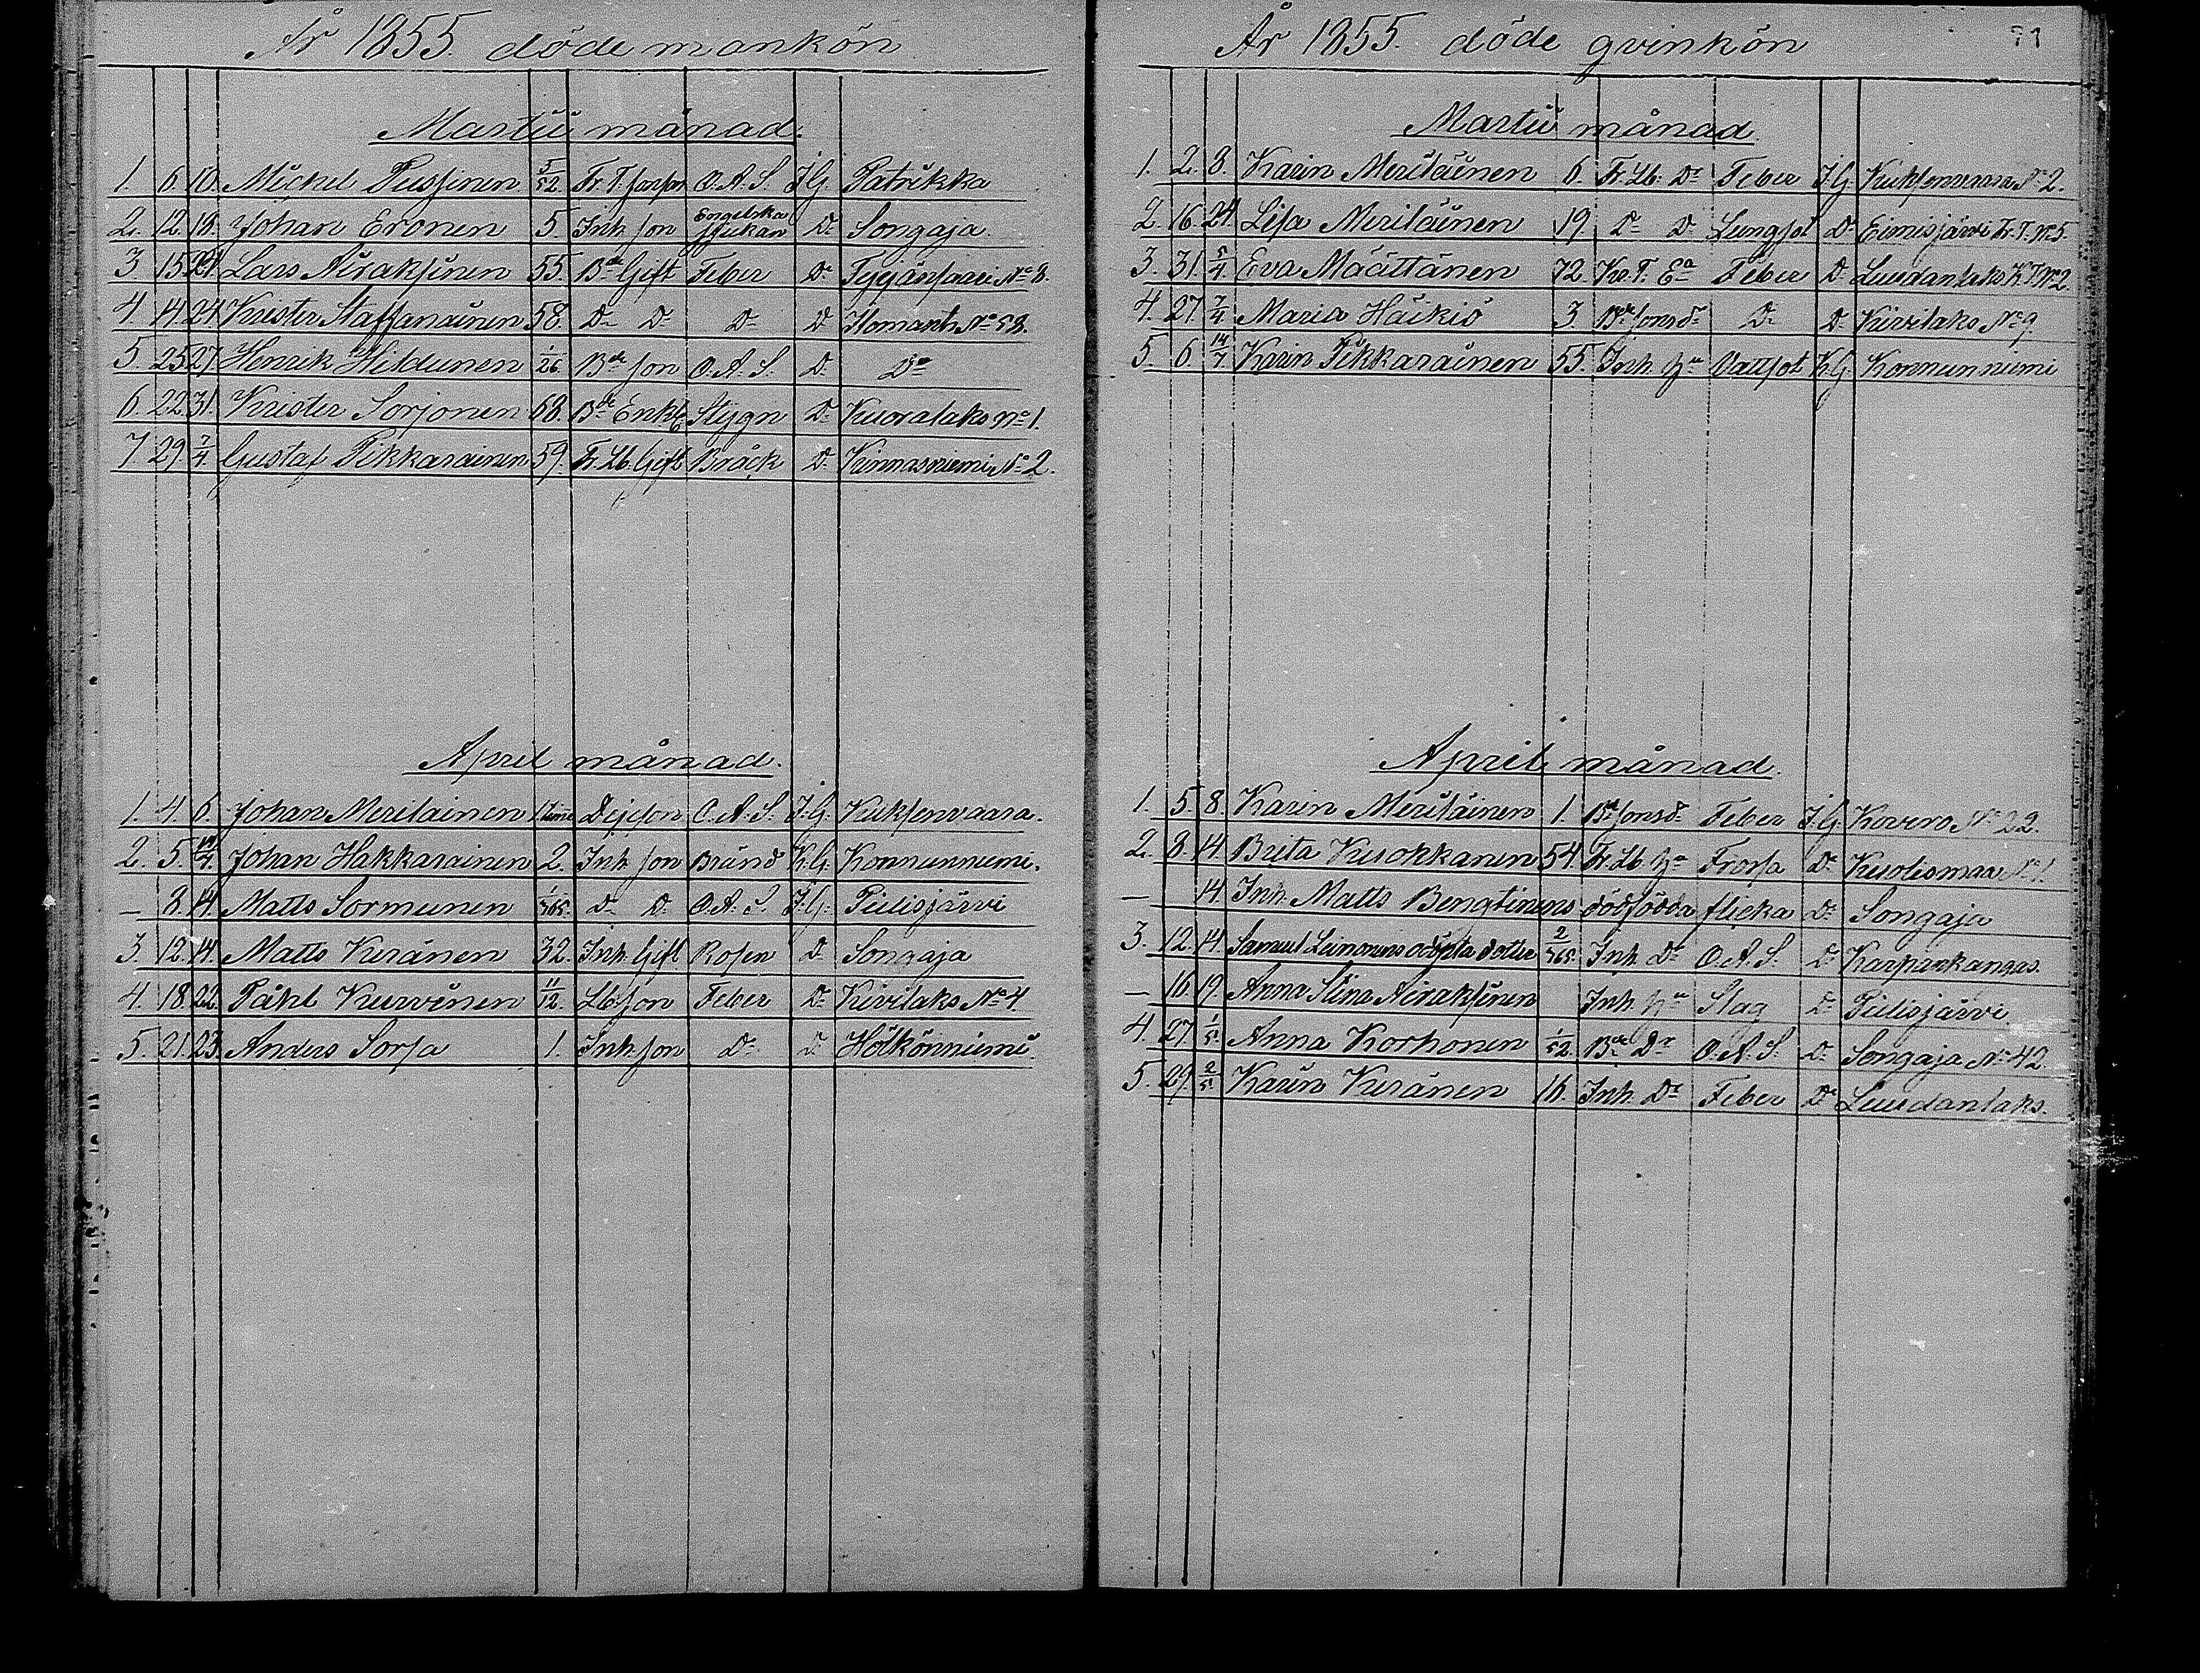 År 1855. döde mankön
Martii månad.
1. 6. 10. Michel Pussinen 5/52. Fr. T. sonson O.A.S. I.G. Patrikka
2. 12. 18. Johan Eronen 5. Inh. son Engelska sjukan Do Songaja.
3 15. 21. Lars Airaksinen 55. Bde Gift Feber Do No 8.
4 14. 24. Krister Staffanainen 58. Do Do Do Do Ilomants No 58.
5. 25 27. Henrik Hildunen 1/26 Bde son O.A.S. Do Do
6. 22 31. Krister Sorjonen 68. Bde Enkl Stygn Do Kuoralaks No 1.
7 29. 7/4. Gustaf Pikkarainen 59. Fr. Lb. Gift Bråck Do Kinnasniemi No 2.
April månad.
1. 4. 6. Johan Meriläinen 1 timme Dejeson O.A.S. I.G. Kuksenvaara.
2. 5. Johan Hakkarainen 2. Inh. son Brånd K.G. Konnunniemi.
— 8. 14. Matts Sormunen 1/365. Do Do O.A.S. I.G. Piilisjärvi
3. 12. 14. Matts Kuränen 32. Inh. Gift Rosen Do Songaja
4. 18. 22. Påhl Kurvinen 11/12. Lb. son Feber Do Kivilaks No 4.
5. 21. 23. Anders Sorsa 1. Inh. son Do Do Hölkönniemi
År 1855. döde qvinkön
Martii månad
1. 2. 8. Karin Meriläinen 6. Fr. Lb. Dr Feber I.G. Kuksenvaara No 2.
2. 16. 24. Lisa Meriläinen 19. Do Do Lungsot Do Eimisjärvi Fr. T. No 5.
3. 31. 5/4. Eva Määttänen 72. Kr. T. Ea Feber Do Luudanlaks Kr T No 2.
4. 27 7/4 Maria Häikiö 3. Bde sonsdr Do Do Kivilaks No 9
5. 6. 14/7. Karin Pikkarainen 55. Inh. Hu Vattsot K.G. Konnunniemi
April månad.
1. 5. 8. Karin Meriläinen 1. Bde sonsdr Feber I.G. Kovero No 22.
2. 8. 14. Brita Kuokkanen 54 Fr. Lb. Hu Frossa Do Kuolismaa No 1.
— 14. Inh. Matts Bengtinens dödfödda flicka Do Songaja
3. 12. 14. Samuel Leinonens odöpta dotter 2/365. Inh. Dr O.A.S. Do Karpankangas.
— 16. 19. Anna Stina Airaksinen Inh. Hu Slag Do Piilisjärvi
4. 27. 1/5. Anna Korhonen 1/52. Bde Dr O.A.S. Do Songaja No 42.
5. 29. 2/5. Karin Kuränen 16. Inh. Dr Feber Do Luudanlaks.